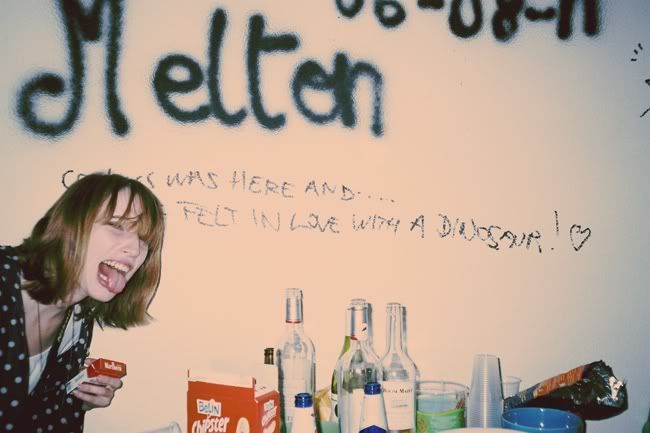 06-08-11
Melton
WAS HERE AND....
FELT IN LOVE WITH A DINOSAUR! ♡
Marlboro
BOLIN
Chipster